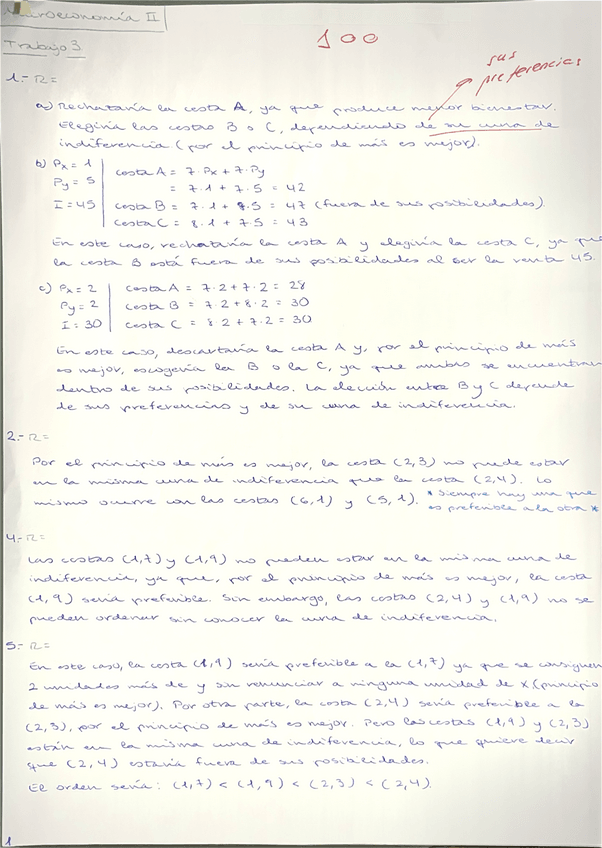 Microeconomía II
100
Trabajo 3
sus
preferencias
1.- R=
a) Rechazaría la cesta A, ya que produce menor bienestar.
Elegiría las cestas B o C, dependiendo de su curva de
indiferencia (por el principio de más es mejor).
b) Px = 1
Py = 5
I = 45
cesta A = 7·Px + 7·Py
= 7·1 + 7·5 = 42
cesta B = 7·1 + 8·5 = 47 (fuera de sus posibilidades).
cesta C = 8·1 + 7·5 = 43
En este caso, rechazaría la cesta A y elegiría la cesta C, ya que
la cesta B está fuera de sus posibilidades al ser la renta 45.
c) Px = 2
Py = 2
I = 30
cesta A = 7·2 + 7·2 = 28
cesta B = 7·2 + 8·2 = 30
cesta C = 8·2 + 7·2 = 30
En este caso, descartaría la cesta A y, por el principio de más
es mejor, escogería la B o la C, ya que ambas se encuentran
dentro de sus posibilidades. La elección entre B y C depende
de sus preferencias y de su curva de indiferencia.
2.- R=
Por el principio de más es mejor, la cesta (2,3) no puede estar
en la misma curva de indiferencia que la cesta (2,4). Lo
mismo ocurre con las cestas (6,1) y (5,1). * Siempre hay una que
es preferible a la otra *
4.- R=
Las cestas (1,7) y (1,9) no pueden estar en la misma curva de
indiferencia, ya que, por el principio de más es mejor, la cesta
(1,9) sería preferible. Sin embargo, las cestas (2,4) y (1,9) no se
pueden ordenar sin conocer la curva de indiferencia.
5.- R=
En este caso, la cesta (1,9) sería preferible a la (1,7) ya que se consiguen
2 unidades más de y sin renunciar a ninguna unidad de x (principio
de más es mejor). Por otra parte, la cesta (2,4) sería preferible a la
(2,3), por el principio de más es mejor. Pero las cestas (1,9) y (2,3)
están en la misma curva de indiferencia, lo que quiere decir
que (2,4) estaría fuera de sus posibilidades.
El orden sería: (1,7) < (1,9) < (2,3) < (2,4).
1